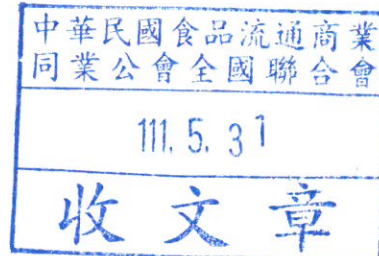 中華民國食品流通商業
同業公會全國聯合會
111. 5. 31
收文章